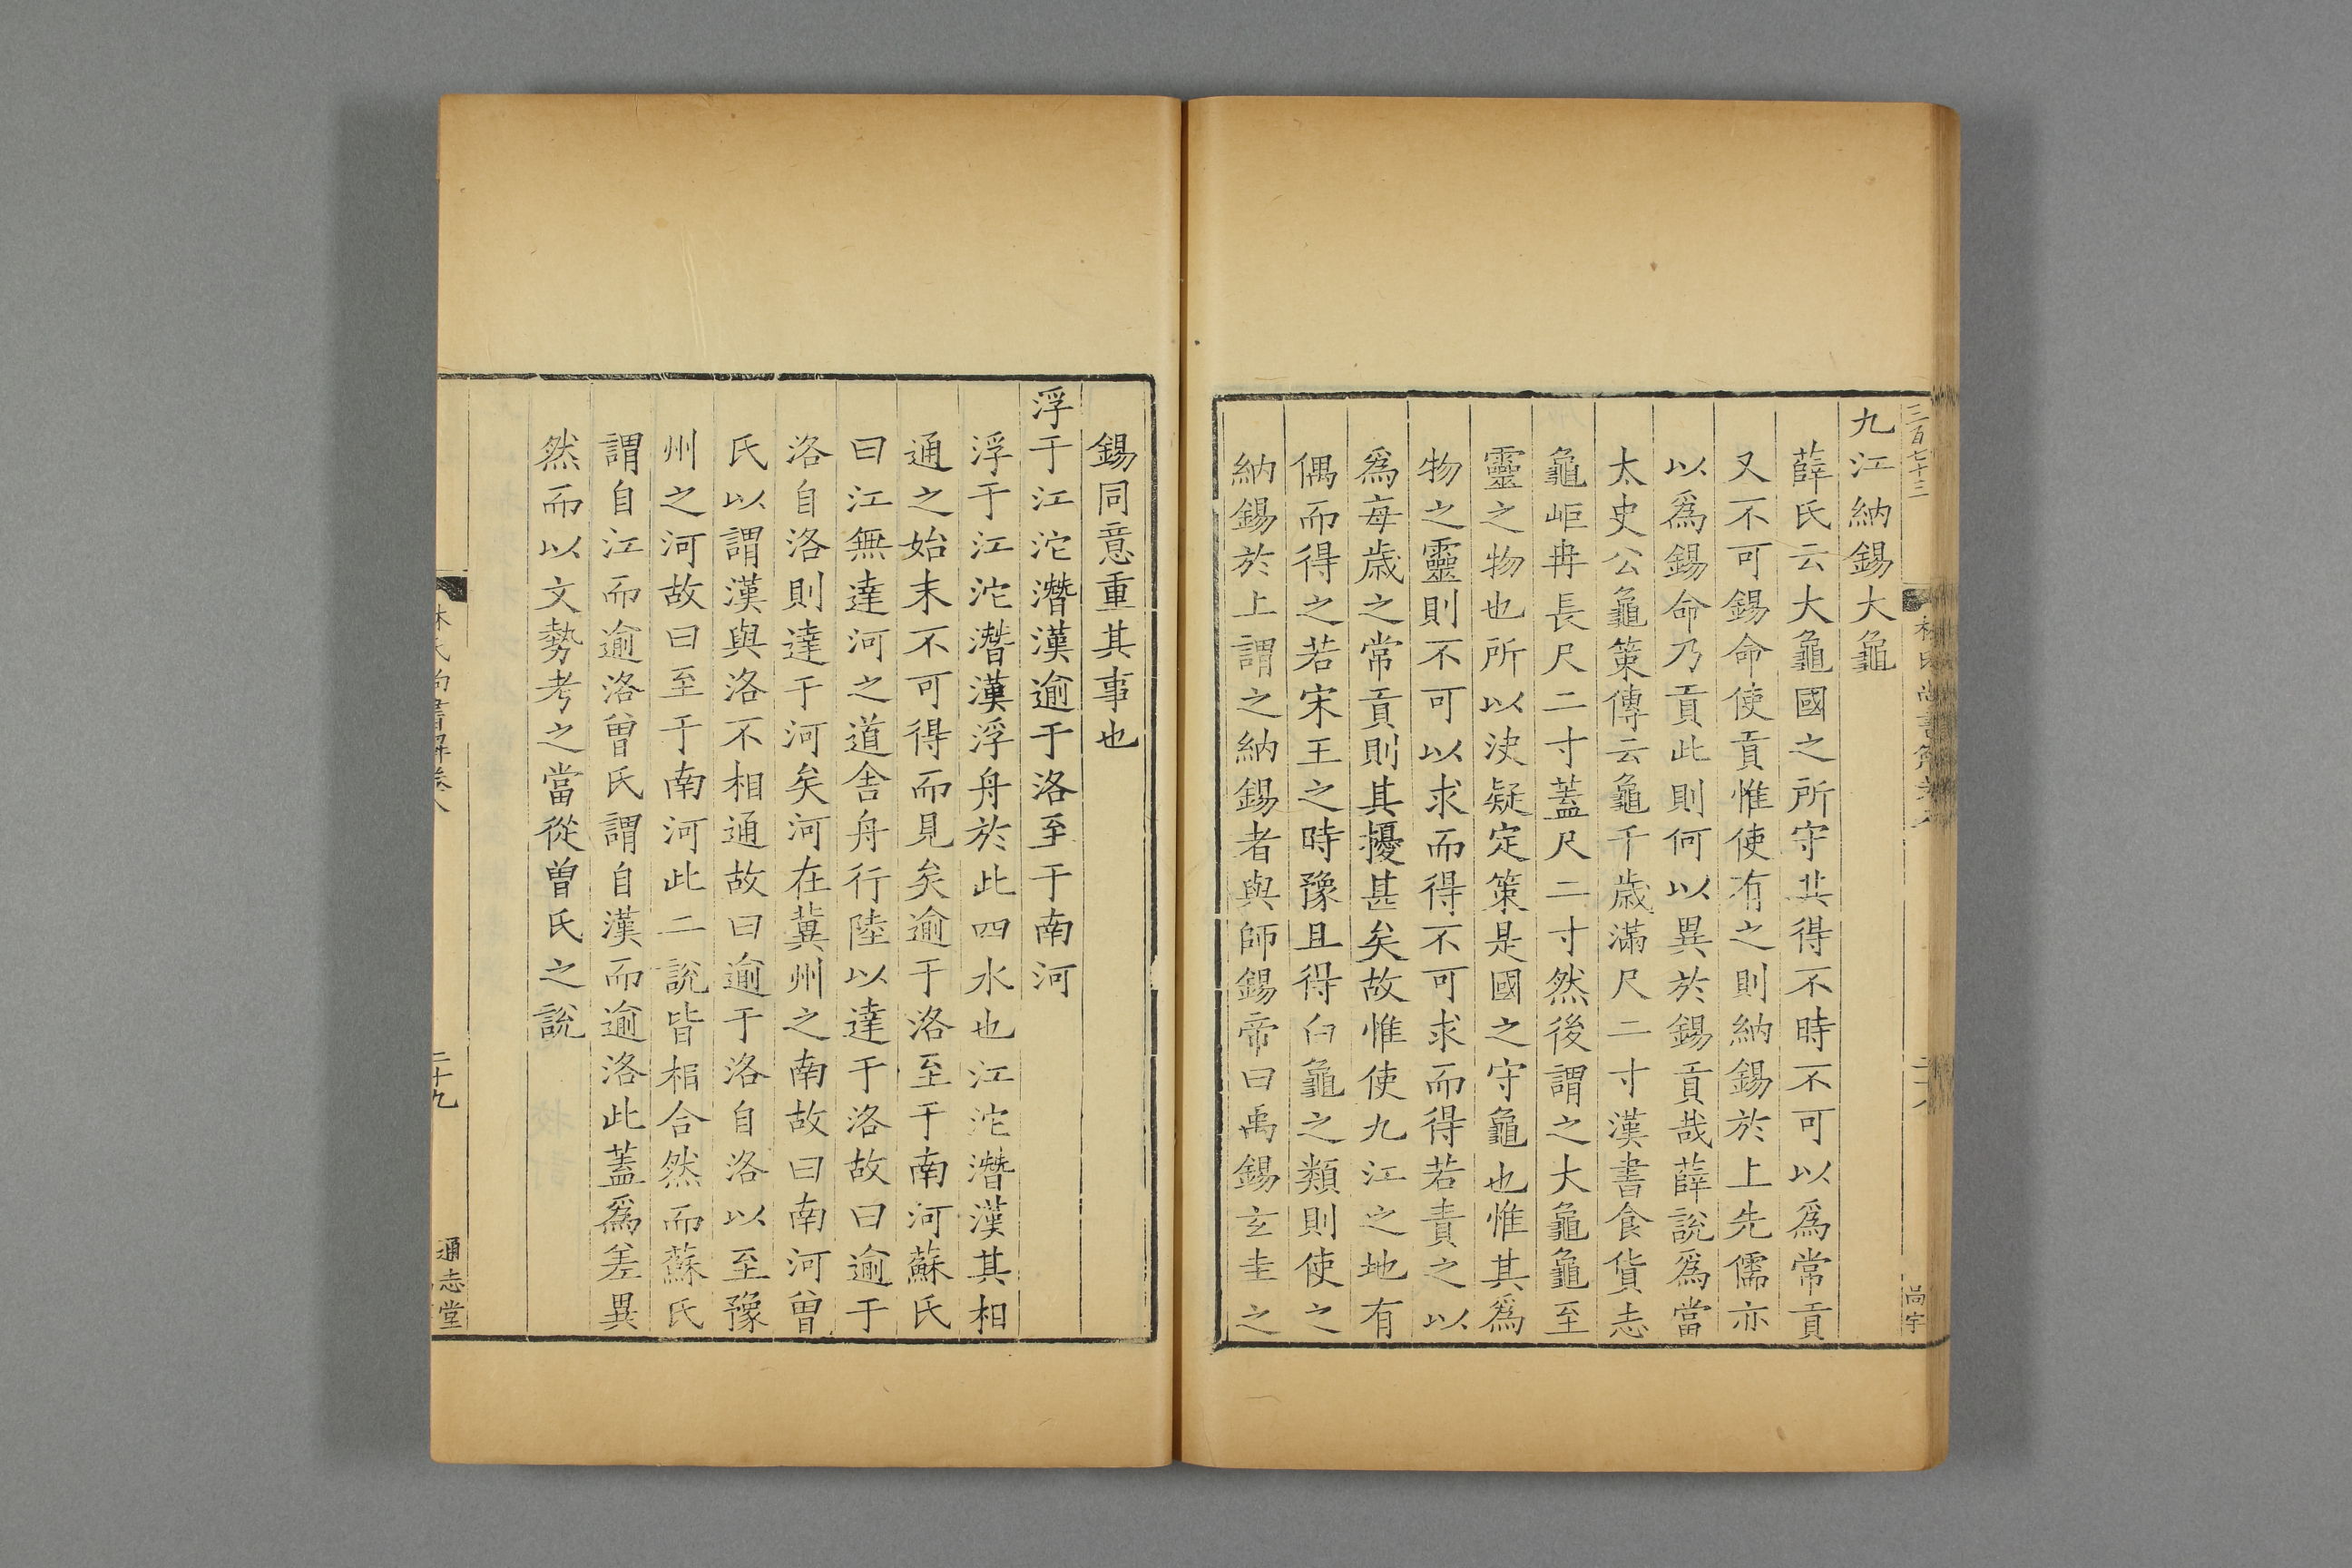 三百七十三
九江納錫大龜
薛氏云大龜國之所守其得不時不可以爲常貢
又不可錫命使貢惟使有之則納錫於上先儒亦
以爲錫命乃貢此則何以異於錫貢哉薛說爲當
太史公龜策傳云龜千歳滿尺二寸漢書食貨志
龜岠冉長尺二寸蓋尺二寸然後謂之大龜龜至
靈之物也所以決疑定策是國之守龜也惟其爲
物之靈則不可以求而得不可求而得若責之以
爲每歳之常貢則其擾甚矣故惟使九江之地有
偶而得之若宋王之時豫且得白龜之類則使之
納錫於上謂之納錫者與師錫帝曰禹錫玄圭之
尚宇
錫同意重其事也
浮于江沱潛漢逾于洛至于南河
浮于江沱潛漢浮舟於此四水也江沱潛漢其相
通之始末不可得而見矣逾于洛至于南河蘇氏
曰江無達河之道舍舟行陸以達于洛故曰逾于
洛自洛則達于河矣河在冀州之南故曰南河曾
氏以謂漢與洛不相通故曰逾于洛自洛以至豫
州之河故曰至于南河此二說皆相合然而蘇氏
謂自江而逾洛曾氏謂自漢而逾洛此蓋爲差異
然而以文勢考之當從曾氏之說
林氏尚書解卷八
二十九
通志堂